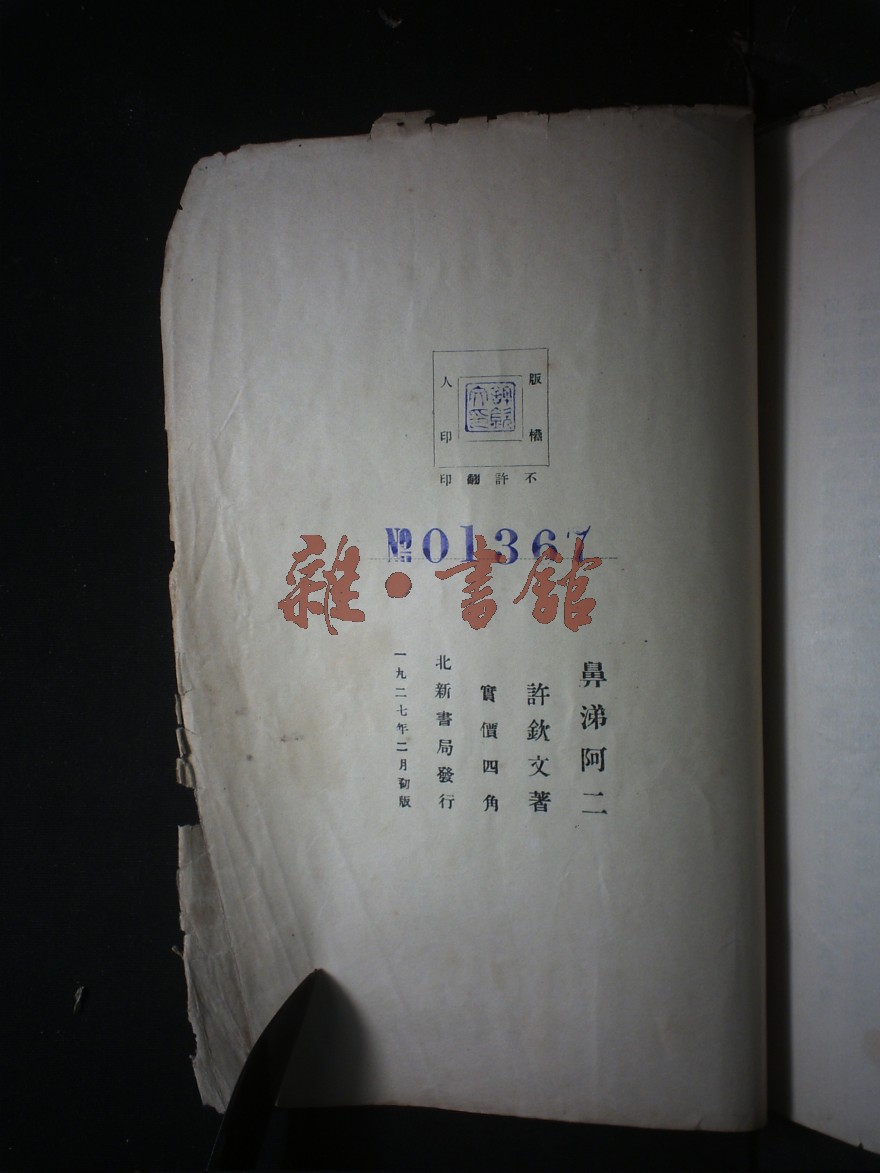 版權
人印
許欽
文印
不許翻印
№01367
雜·書館
鼻涕阿二
許欽文著
實價四角
北新書局發行
一九二七年二月初版